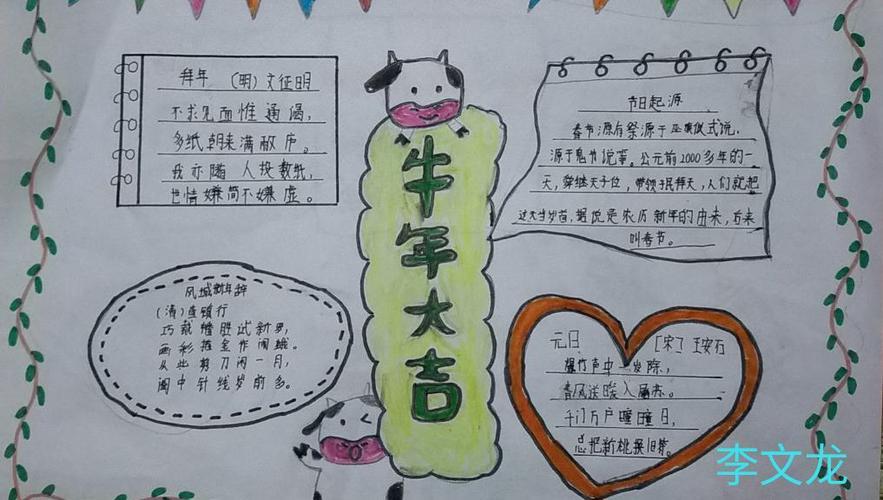 拜年 (明) 文征明
不求见面惟通谒,
名纸朝来满敝庐。
我亦随人投数纸,
世情嫌简不嫌虚。
牛年大吉
节日起源
春节源有祭源于巫术仪式说,
源于鬼节说等。公元前2000多年的一
天,舜继天子位,带领拜天,人们就把
这天当岁首,据说是农历新年的由来,后来
叫春节。
凤城新年辞
(清)查镇行
巧裁幡胜试新罗,
画彩描金作闹蛾。
从此剪刀闲一月,
闺中针线岁前多。
元日 [宋] 王安石
爆竹声中一岁除,
春风送暖入屠苏。
千门万户瞳瞳日,
总把新桃换旧符。
李文龙